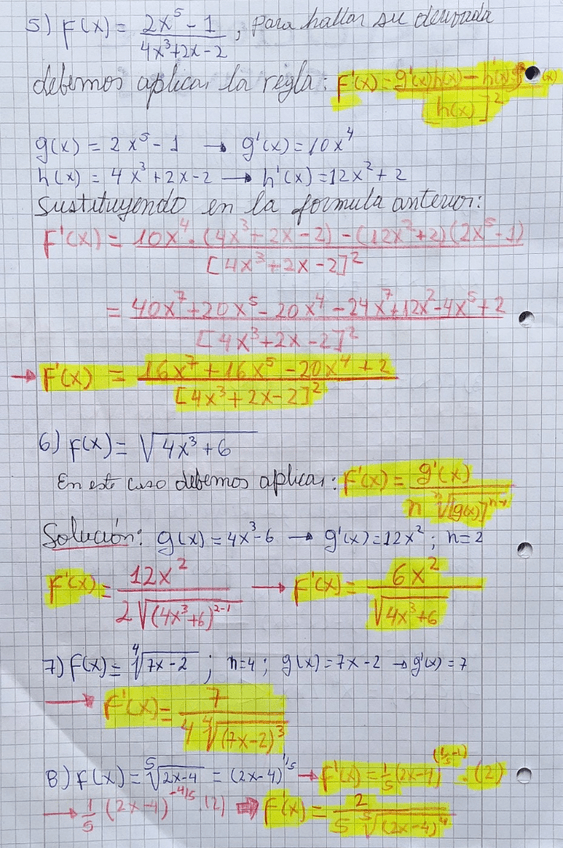 5) F(x) = (2x⁵ - 1)/(4x³+2x-2), para hallar su derivada
debemos aplicar la regla: F'(x) = (g'(x)h(x) - h'(x)g(x))/[h(x)]²
g(x) = 2x⁵ - 1 → g'(x) = 10x⁴
h(x) = 4x³+2x-2 → h'(x) = 12x²+2
Sustituyendo en la formula anterior:
F'(x) = (10x⁴·(4x³+2x-2) - (12x²+2)(2x⁵-1))/[4x³+2x-2]²
= (40x⁷+20x⁵-20x⁴-24x⁷+12x²-4x⁵+2)/[4x³+2x-2]²
→ F'(x) = (16x⁷+16x⁵-20x⁴+2)/[4x³+2x-2]²
6) F(x) = √(4x³+6)
En este caso debemos aplicar: F'(x) = g'(x)/(n ⁿ√[g(x)]ⁿ⁻¹)
Solución: g(x) = 4x³-6 → g'(x) = 12x²; n=2
F'(x) = 12x²/(2√((4x³+6)²⁻¹)) → F'(x) = 6x²/√(4x³+6)
7) F(x) = ⁴√(7x-2); n=4; g(x) = 7x-2 → g'(x) = 7
→ F'(x) = 7/(4 ⁴√((7x-2)³))
8) F(x) = ⁵√(2x-4) = (2x-4)^(1/5) → F'(x) = 1/5(2x-4)^(1/5-1)·(2)
→ 1/5 (2x-4)^(-4/5)·(2) ⇒ F'(x) = 2/(5 ⁵√((2x-4)⁴))